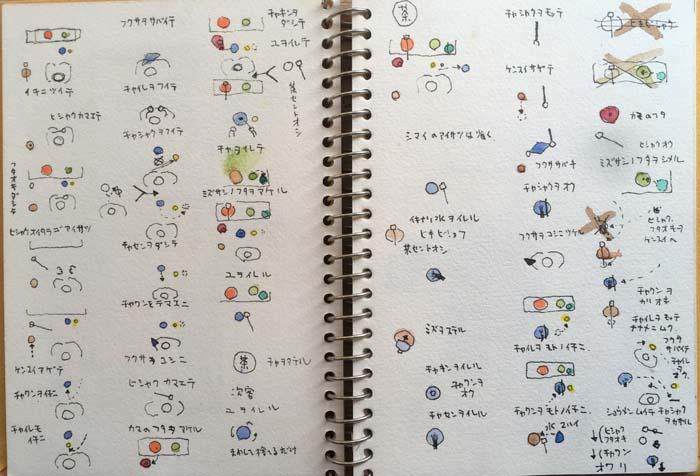 イチニツイテ
フタオキダシテ
ヒシャクカマエテ
ヒシャクオイタラゴアイサツ
ケンスイアゲテ
チャワンヲイチニ
チャイレモ
イチニ
フクササバイテ
チャイレヲフイテ
チャシャクヲフイテ
チャセンヲダシテ
チャワンをテマエニ
フクサヲコシニ
ヒシャクカマエテ
カマのフタヲアケル
チャキンヲ
ダシテ
ユヲイレテ
茶セントオシ
チャヲイレテ
ミズサシノフタヲアケル
ユヲイレル
茶
チャヲタテル
次客
ユヲイレル
まわして捨てるだけ
茶
シマイのアイサツは
イキナリ水ヲイレル
茶セントオシ
ミズヲステル
チャキンイレル
チャシャクヲ
オク
チャセンイレル
チャシャクヲモッテ
ケンスイサゲテ
フクササバキ
チャシャクヲオク
フクサヲコシニツケル
チャイレヲモトノイチニ
チャワンヲモトノイチニ
カマのフタ
ヒシャクオク
ミズサシノフタヲシメル
ヒシャク
フタオキヲ
ケンスイヘ
チャワンヲ
カリオキ
チャイレヲモッテ
ナナメニムク
フクサ
サバイテ
チャイレ
オク
ショウメンムイテ
チャシャク
ヒシャク
フタオキ
チャワン
オワリ